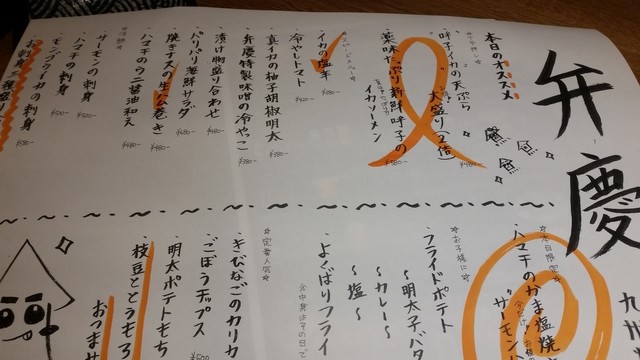 弁慶
本日のオススメ
・呼子イカの天ぷら 大盛り(2倍)
・薬味たっぷり新鮮呼子の
イカソーメン
・イカの塩辛
・冷やしトマト
・真イカの柚子胡椒明太 ¥380-
・弁慶特製味噌の冷やっこ ¥380-
・漬け物盛り合わせ ¥480-
・パリパリ海鮮サラダ ¥580-
・焼きナスの生ハム巻き ¥480-
・ハマチのうに醤油和え ¥480-
・サーモンの刺身
・ハマチの刺身
・モンゴウイカの刺身
・お刺身三種盛り
九州
☆本日限定☆
・ハマチのかま塩焼
・サーモン
☆お子様に☆
・フライドポテト
〜明太子バタ
〜カレー〜
〜塩〜
・よくばりフライ
☆中身は その日で
☆定番人気☆
・きびなごのカリカ
・ごぼうチップス ¥500
・明太ポテトもち
・枝豆ととうもろ
おつまサ